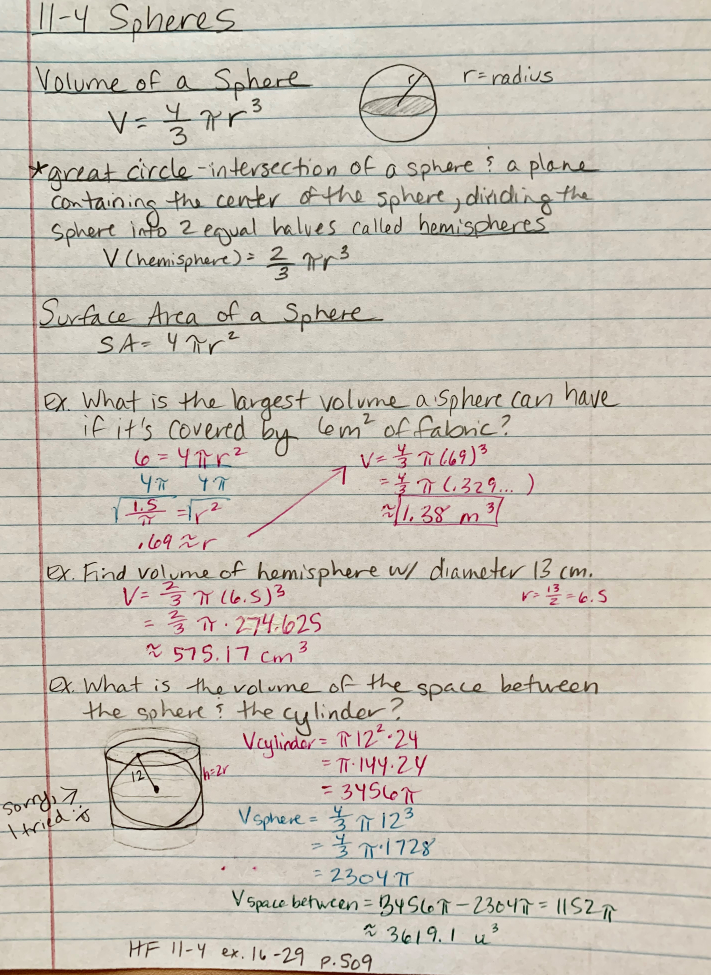 11-4 Spheres
Volume of a Sphere
V = 4/3 πr³
r
r = radius
*great circle - intersection of a sphere & a plane
containing the center of the sphere, dividing the
sphere into 2 equal halves called hemispheres
V (hemisphere) = 2/3 πr³
Surface Area of a Sphere
SA = 4πr²
Ex. What is the largest volume a sphere can have
if it's covered by 6m² of fabric?
6 = 4πr²
4π 4π
√1.5/π = √r²
.69 ≈ r
V = 4/3 π (.69)³
= 4/3 π (.329...)
≈ 1.38 m³
Ex. Find volume of hemisphere w/ diameter 13 cm.
V = 2/3 π (6.5)³
r = 13/2 = 6.5
= 2/3 π · 274.625
≈ 575.17 cm³
Ex. What is the volume of the space between
the sphere & the cylinder?
12
h=2r
sorry,
I tried :)
Vcylinder = π12²·24
= π·144·24
= 3456π
Vsphere = 4/3 π 12³
= 4/3 π·1728
= 2304π
Vspace between = 3456π - 2304π = 1152π
≈ 3619.1 u³
HF 11-4 ex. 16-29 p.509